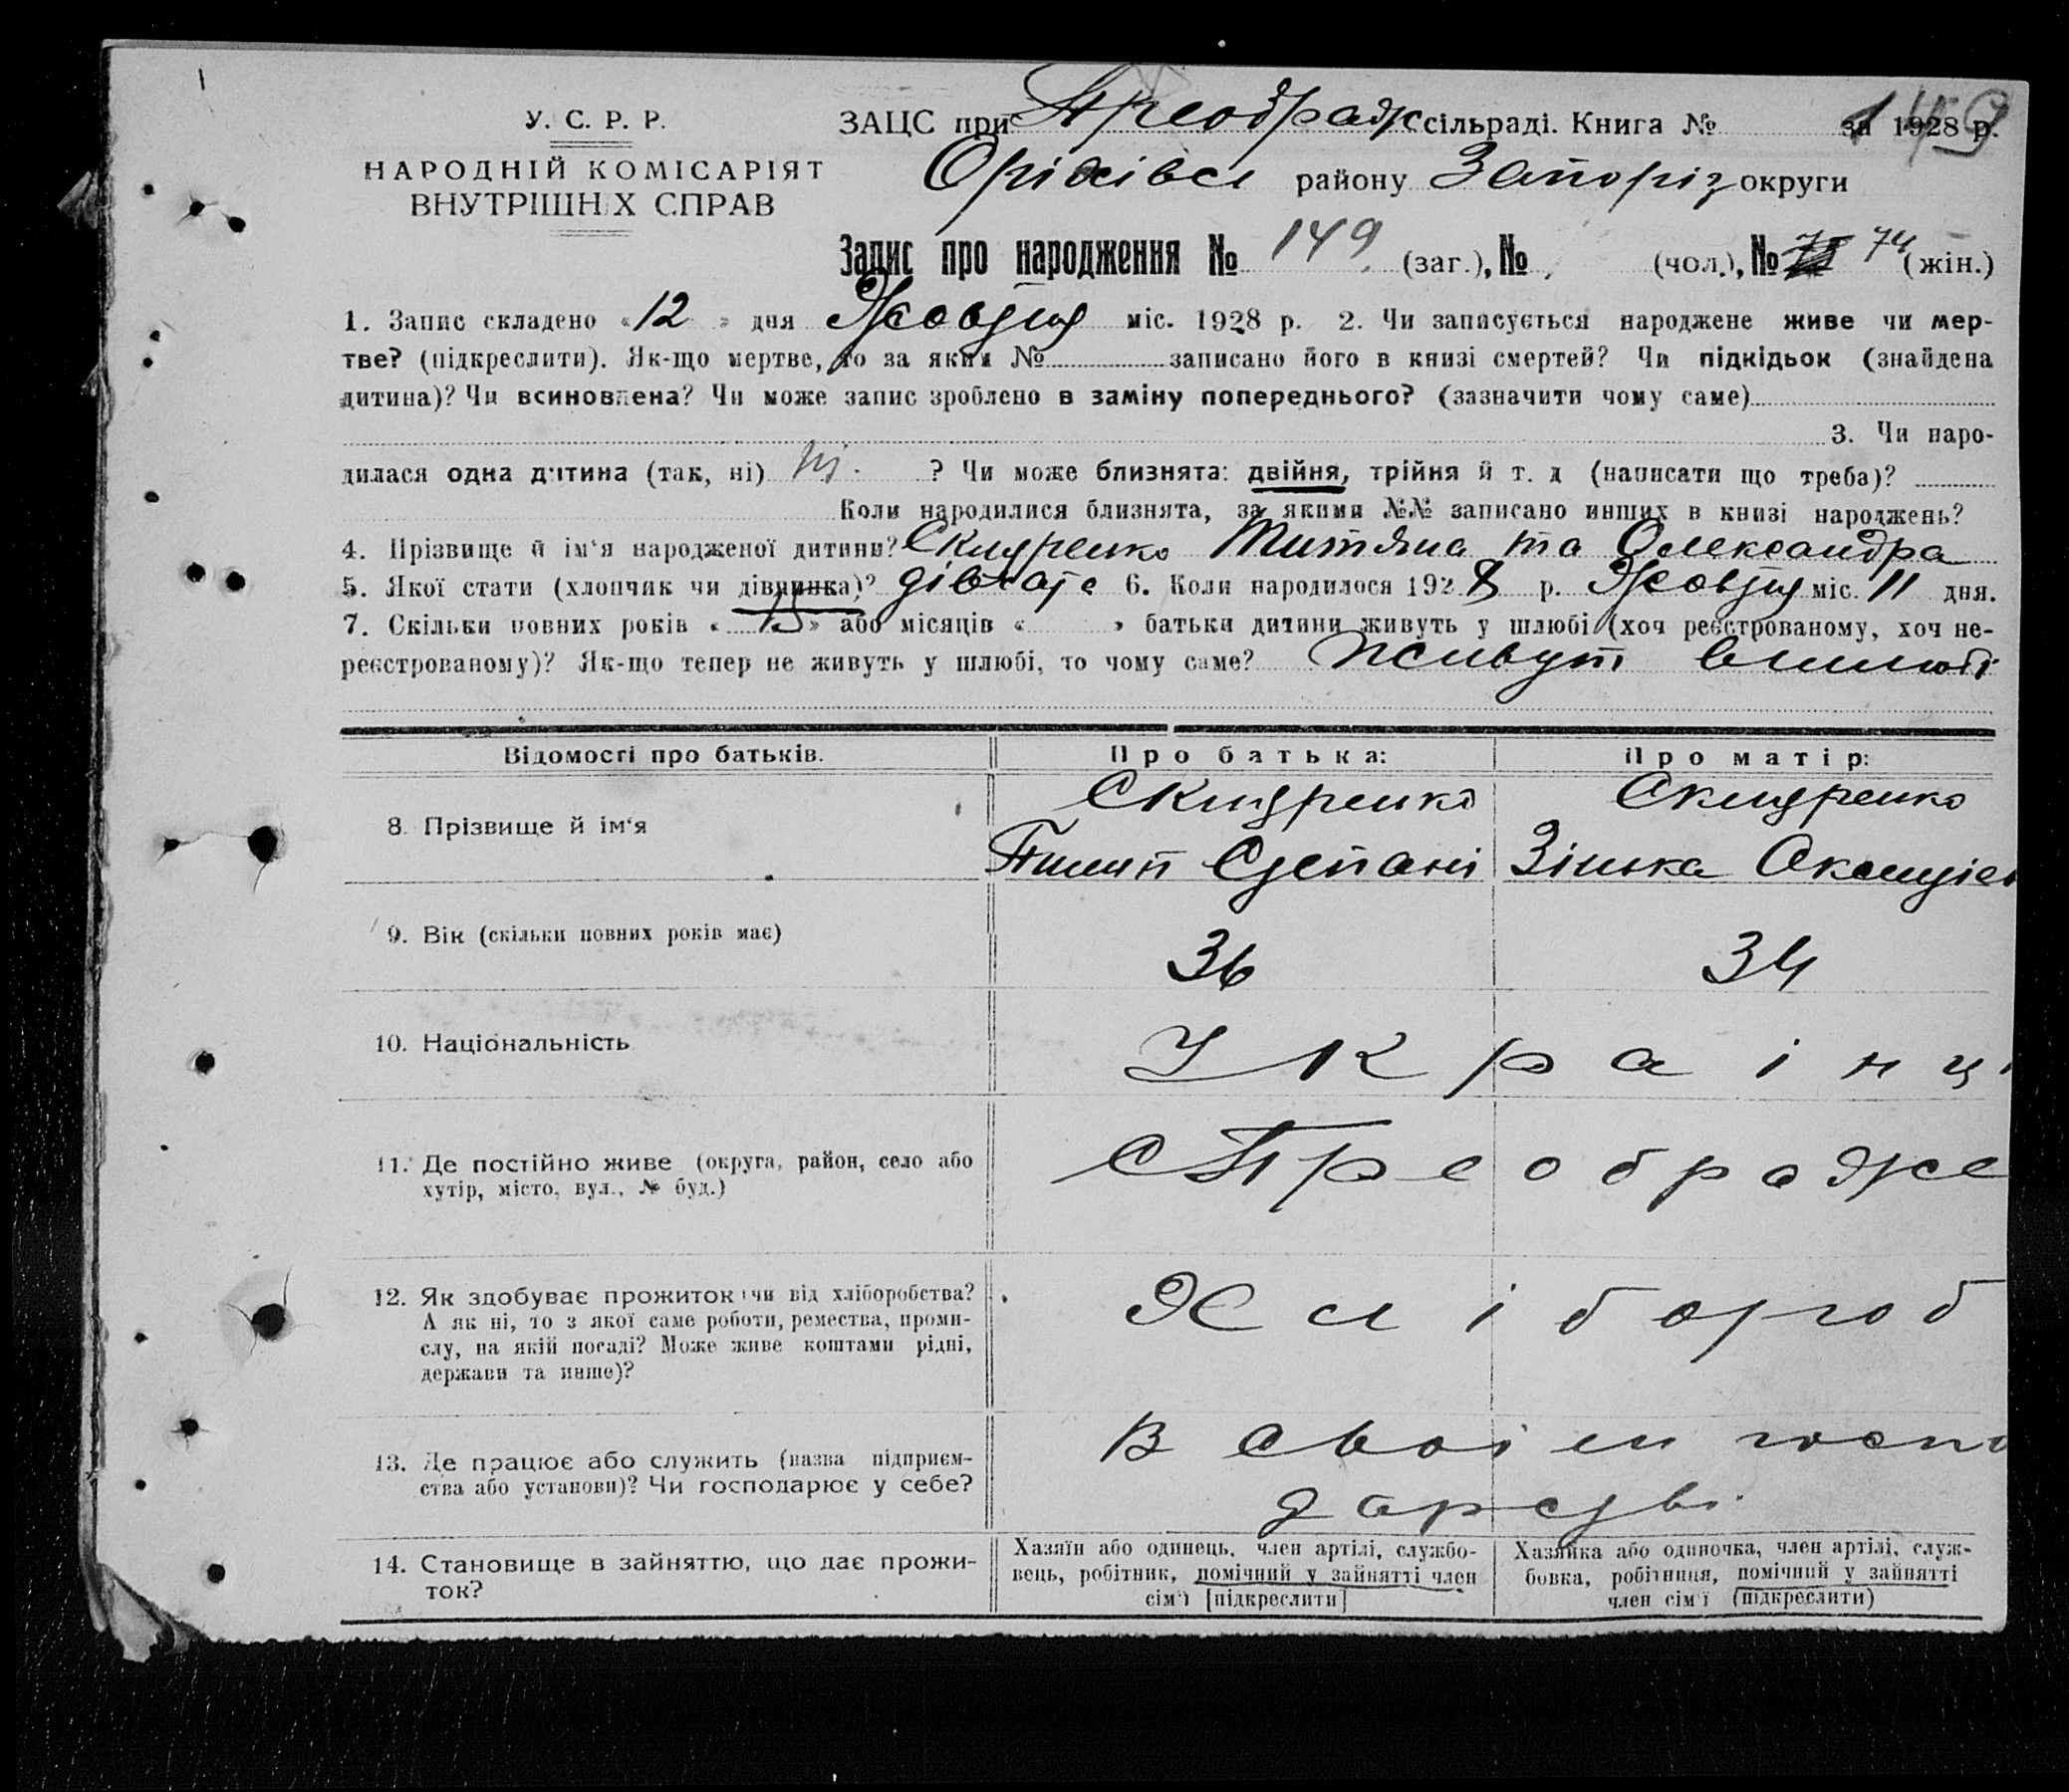 У. С. Р. Р.
НАРОДНІЙ КОМІСАРІЯТ
ВНУТРІШНІХ СПРАВ
ЗАЦС при Преображ сільраді. Книга № за 1928 р.
Оріхівськ району Запоріз округи
Запис про народження № 149 (заг.), № (чол.), № 74 (жін.)
1. Запис складено «12» дня Жовтня міс. 1928 р. 2. Чи записується народжене живе чи мер-
тве? (підкреслити). Як-що мертве, то за яким № записано його в книзі смертей? Чи підкідьок (знайдена
дитина)? Чи всиновлена? Чи може запис зроблено в заміну попереднього? (зазначити чому саме)
3. Чи наро-
дилася одна дитина (так, ні) ні. ? Чи може близнята: двійня, трійня й т. д (написати що треба)?
Коли народилися близнята, за якими №№ записано инших в книзі народжень?
4. Прізвище й ім'я народженої дитини? Скляренко Титяна та Олександра
5. Якої стати (хлопчик чи дівчинка)? дівчата 6. Коли народилося 1928 р. Жовтня міс. 11 дня.
7. Скільки повних років «15» або місяців « » батьки дитини живуть у шлюбі (хоч реєстрованому, хоч не-
реєстрованому)? Як-що тепер не живуть у шлюбі, то чому саме? живут вшлюбі
Відомості про батьків. Про батька: Про матір:
8. Прізвище й ім'я
Скляренко Скляренко
Пилип Степані Зінька
9. Вік (скільки повних років має) 36 34
10. Національність Українці
11. Де постійно живе (округа, район, село або
хутір, місто, вул., № буд.)
С Преображе
12. Як здобуває прожиток (чи від хліборобства?
А як ні, то з якої саме роботи, ремества, проми-
слу, на якій посаді? Може живе коштами рідні,
держави та инше)?
Хлібороб
13. Де працює або служить (назва підприєм-
ства або установи)? Чи господарює у себе?
В своім госпо
дарстві.
14. Становище в зайняттю, що дає прожи-
ток?
Хазяїн або одинець, член артілі, службо-
вець, робітник, помічний у зайнятті член
сім'ї [підкреслити]
Хазяйка або одиночка, член артілі, служ-
бовка, робітниця, помічний у зайнятті
член сім'ї (підкреслити)